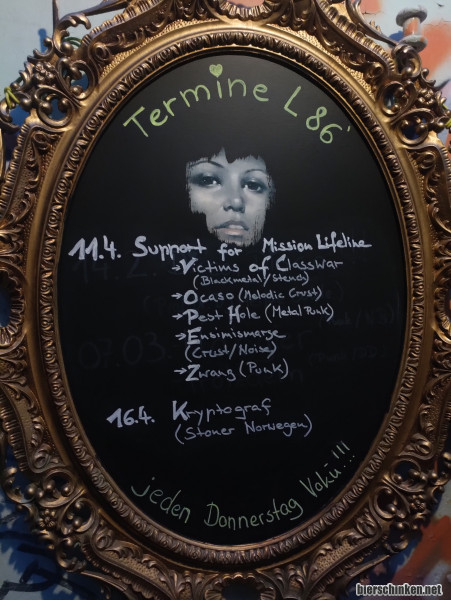 Termine L86'
11.4. Support for Mission Lifeline
→Victims of Classwar
(Blackmetal/Stench)
→Ocaso (Melodic Crust)
→Pest Hole (Metal Punk)
→Ensimismarse
(Crust/Noise)
→Zwang (Punk)
16.4. Kryptograf
(Stoner Norwegen)
jeden Donnerstag Vokü!!!
bierschinken.net